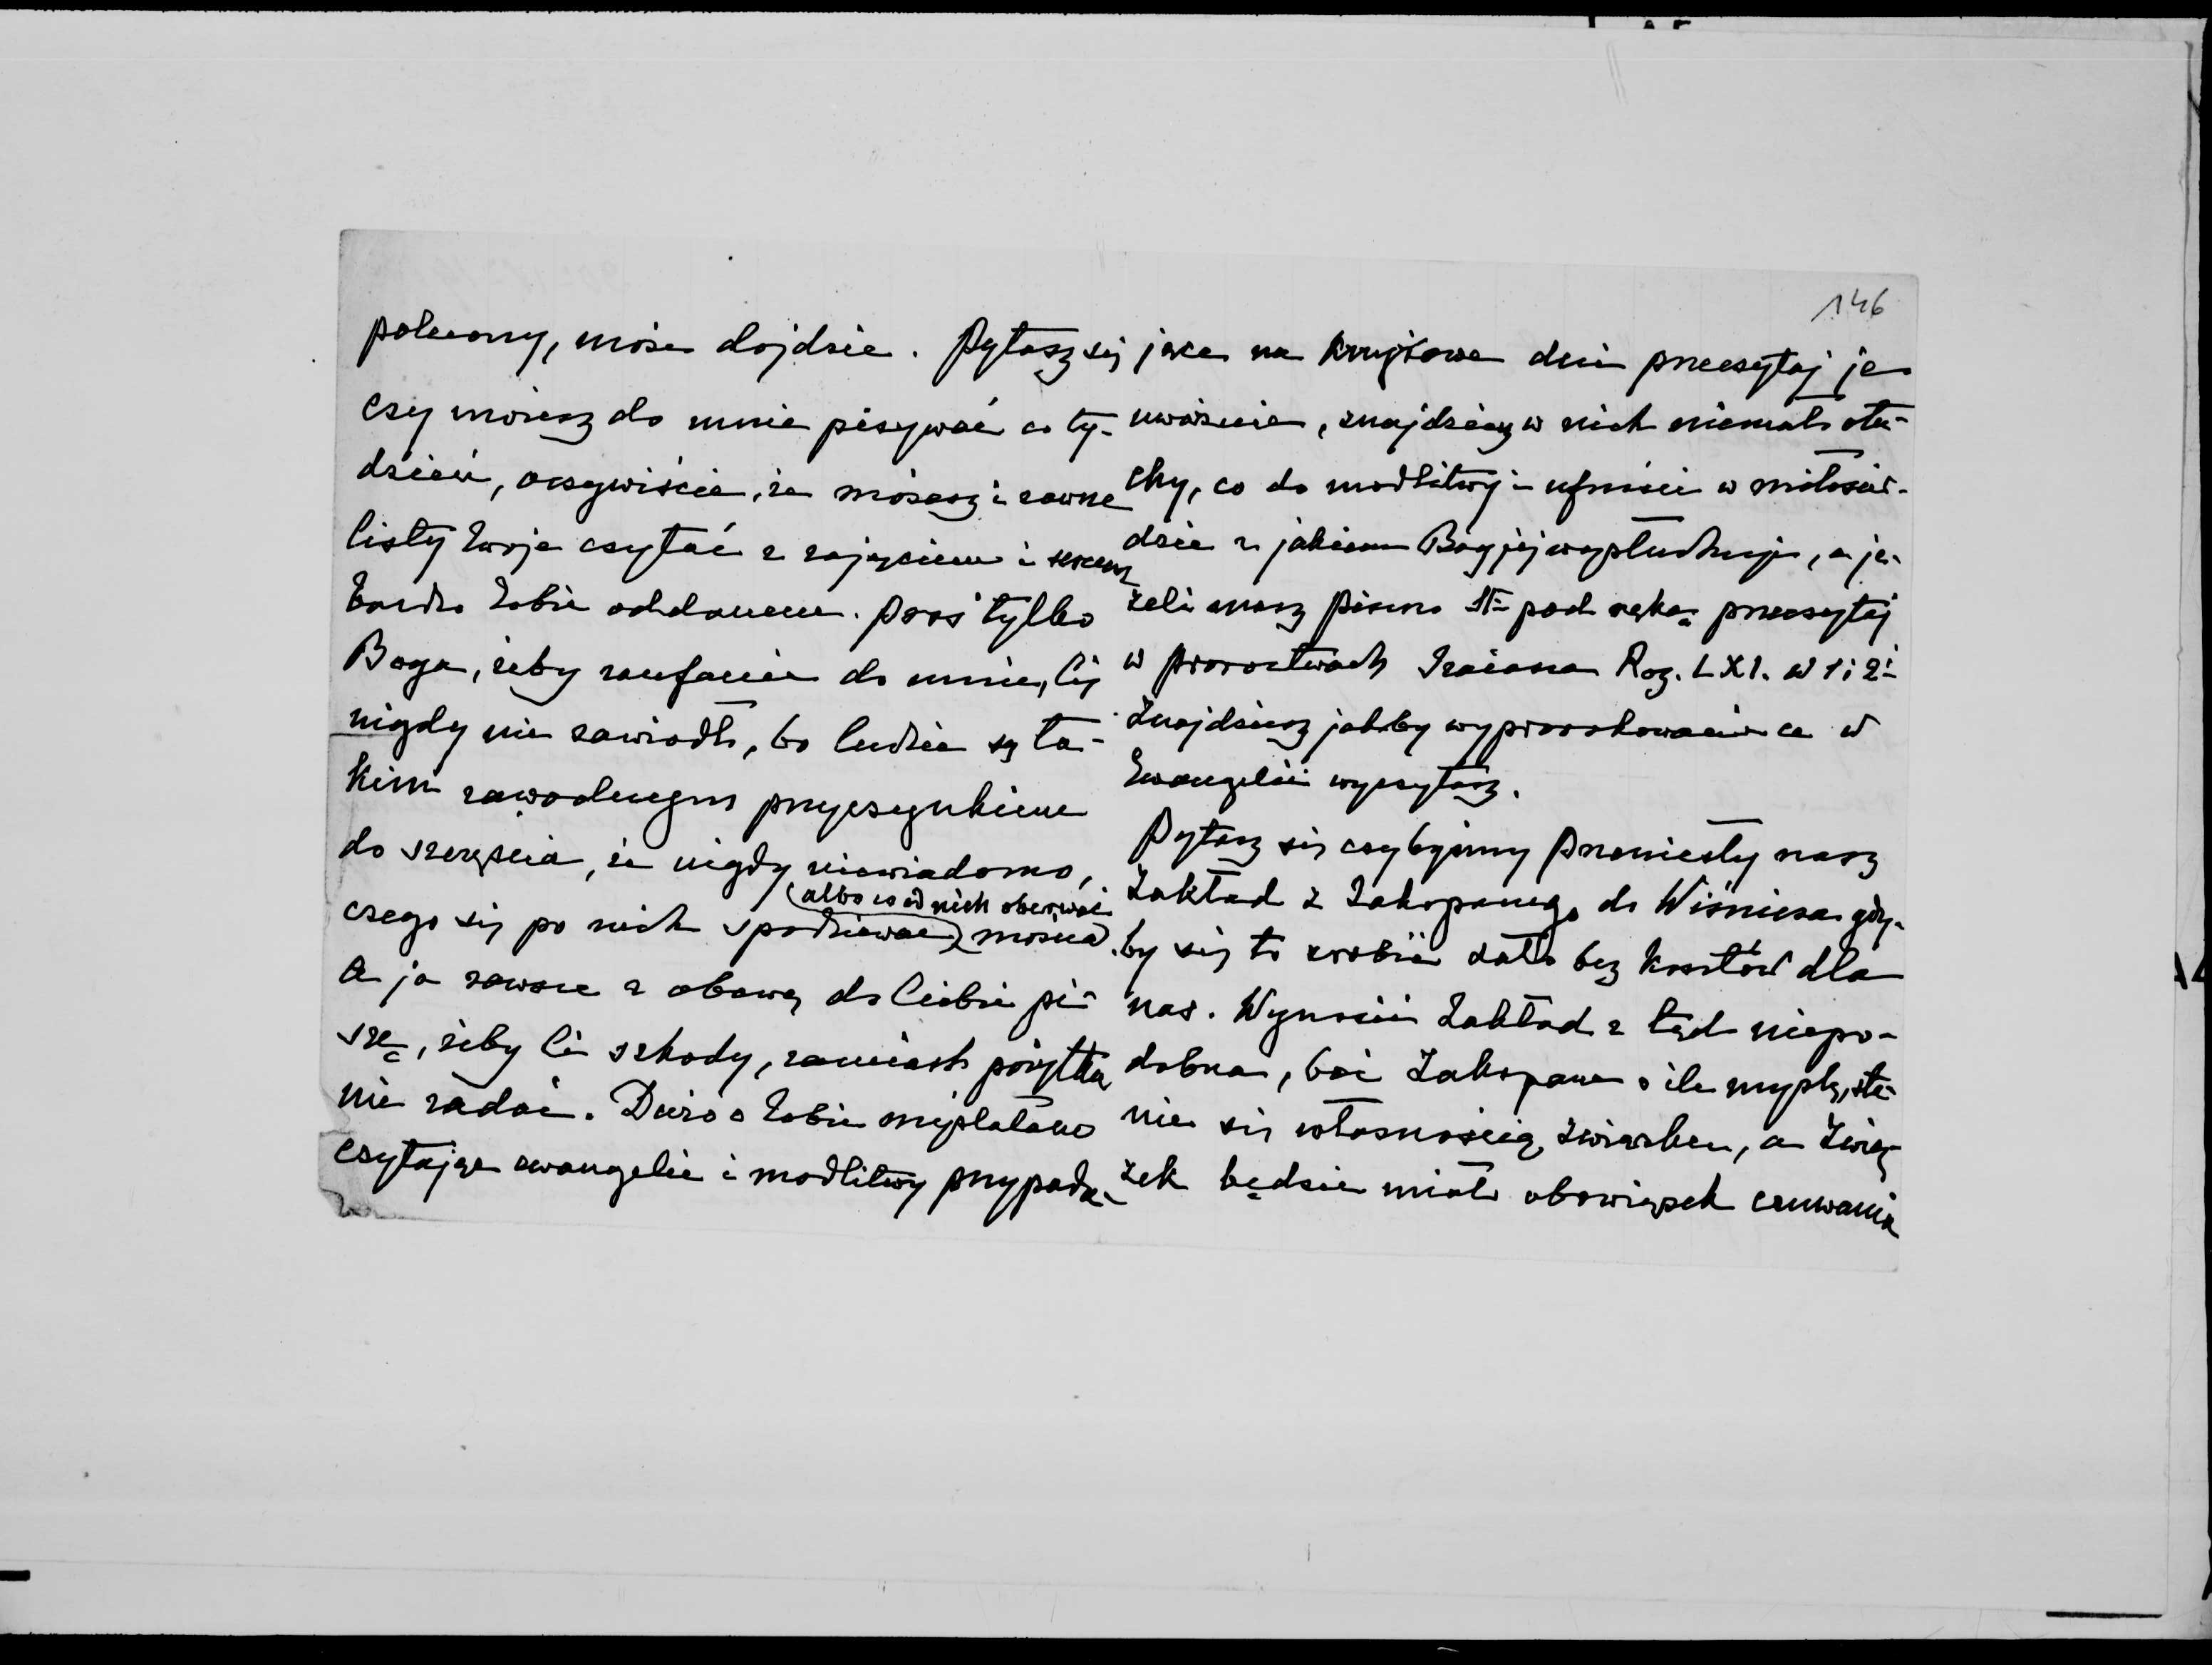 146
polecony, może dojdzie. Pytasz się
czy możesz do mnie pisywać co ty-
dzień, oczywiście, że możesz i zawsze
listy Twoje czytać z zajęciem i sercem
bardzo Tobie oddanem. Proś tylko
Boga, żeby zaufanie do mnie, Cię
nigdy nie zawiodło, bo ludzie są ta-
kim zawodnym przyczynkiem
do szczęścia, że nigdy niewiadomo,
(albo co od nich oberwać
czego się po nich spodziewać) można.
A ja zawsze z obawą do Ciebie pi-
szę, żeby Ci szkody, zamiast pożytku
nie zadać. Dużo o Tobie myślałam
czytając ewangelie i modlitwy przypada-
jące na krzyżowe dni przeczytaj je
uważnie, znajdziesz w nich niemało otu-
chy, co do modlitwy i ufności w miłosier-
dzie z jakiem Bóg jej wysłuchuje, a je-
żeli masz pismo Ste pod ręką przeczytaj
w proroctwach Izaiasza Roz. LXI. w 1 i 2i
Znajdziesz jakby wyprorokowanie co w
Ewangelii wyczytasz.
Pytasz się czybyśmy przenieśły nasz
Zakład z Zakopanego do Wiśnicza gdy-
by się to zrobić dało bez kosztów dla
nas. Wynosić Zakład z tąd niepo-
dobna, boć Zakopane o ile myślę, sta-
nie się własnością Związku, a Zwią-
zek będzie miał obowiązek czuwania